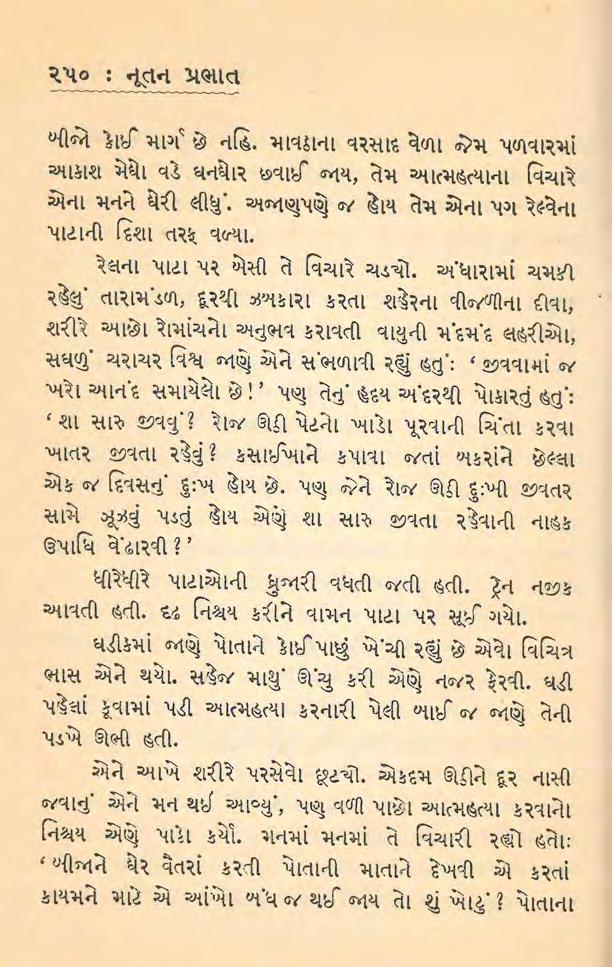 ૨૫૦ : નૂતન પ્રભાત
બીજો કોઈ માર્ગ છે નહિ. માવઠાના વરસાદ વેળા જેમ પળવારમાં
આકાશ મેઘો વડે ઘનઘોર છવાઈ જાય, તેમ આત્મહત્યાના વિચારે
એના મનને ઘેરી લીધું. અજાણપણે જ હોય તેમ એના પગ રેલ્વેના
પાટાની દિશા તરફ વળ્યા.
રેલના પાટા પર બેસી તે વિચારે ચડ્યો. અંધારામાં ચમકી
રહેલું તારામંડળ, દૂરથી ઝબકારા કરતા શહેરના વીજળીના દીવા,
શરીરે આછો રોમાંચનો અનુભવ કરાવતી વાયુની મંદમંદ લહરીઓ,
સઘળું ચરાચર વિશ્વ જાણે એને સંભળાવી રહ્યું હતું: ‘ જીવવામાં જ
ખરો આનંદ સમાયેલો છે!’ પણ તેનું હૃદય અંદરથી પોકારતું હતું:
‘ શા સારુ જીવવું? રોજ ઊઠી પેટનો ખાડો પૂરવાની ચિંતા કરવા
ખાતર જીવતા રહેવું? કસાઈખાને કપાવા જતાં બકરાંને છેલ્લા
એક જ દિવસનું દુઃખ હોય છે. પણ જેને રોજ ઊઠી દુઃખી જીવતર
સામે ઝૂઝવું પડતું હોય એણે શા સારુ જીવતા રહેવાની નાહક
ઉપાધિ વેંઢારવી?’
ધીરેધીરે પાટાઓની ધ્રુજારી વધતી જતી હતી. ટ્રેન નજીક
આવતી હતી. દૃઢ નિશ્ચય કરીને વામન પાટા પર સૂઈ ગયો.
ઘડીકમાં જાણે પોતાને કોઈ પાછું ખેંચી રહ્યું છે એવો વિચિત્ર
ભાસ એને થયો. સહેજ માથું ઊંચુ કરી એણે નજર ફેરવી. ઘડી
પહેલાં કૂવામાં પડી આત્મહત્યા કરનારી પેલી બાઈ જ જાણે તેની
પડખે ઊભી હતી.
એને આખે શરીરે પરસેવો છૂટ્યો. એકદમ ઊઠીને દૂર નાસી
જવાનું એને મન થઈ આવ્યું, પણ વળી પાછો આત્મહત્યા કરવાનો
નિશ્ચય એણે પાકો કર્યો. મનમાં મનમાં તે વિચારી રહ્યો હતો:
‘ બીજાને ઘેર વૈતરાં કરતી પોતાની માતાને દેખવી એ કરતાં
કાયમને માટે એ આંખો બંધ જ થઈ જાય તો શું ખોટું? પોતાના